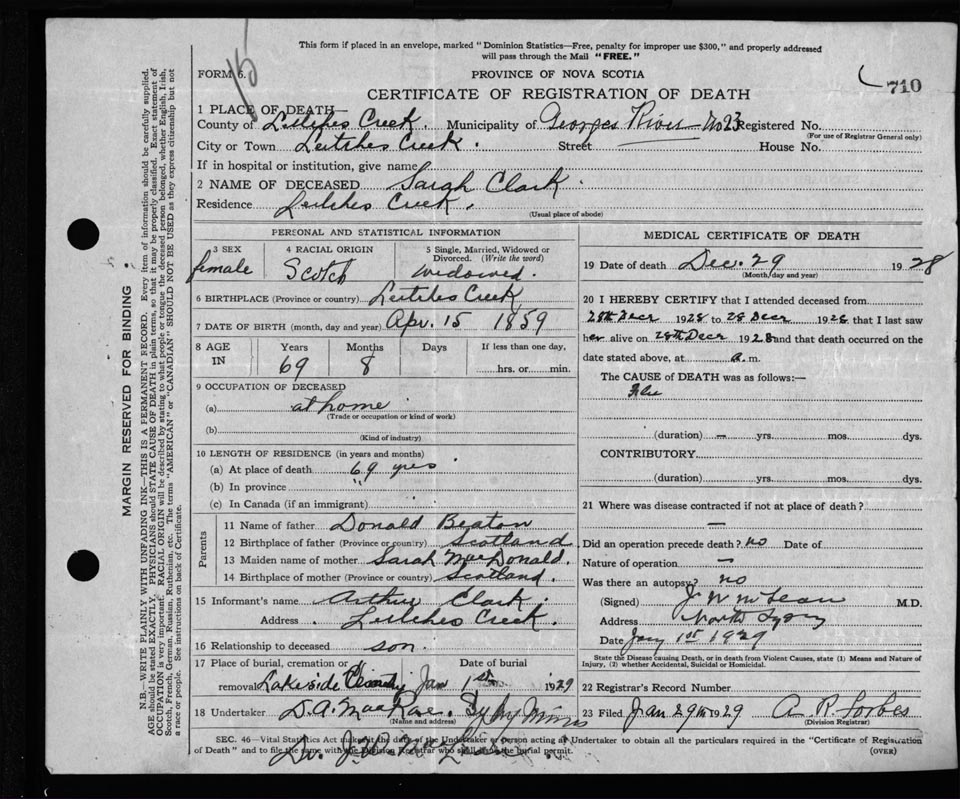 This form if placed in an envelope, marked "Dominion Statistics—Free, penalty for improper use $300," and properly addressed
will pass through the Mail "FREE."
FORM 6.
PROVINCE OF NOVA SCOTIA
710
CERTIFICATE OF REGISTRATION OF DEATH
1 PLACE OF DEATH—
County of Leitches Creek. Municipality of Georges River No 23 Registered No.
(For use of Registrar General only)
City or Town Leitches Creek. Street House No.
If in hospital or institution, give name
2 NAME OF DECEASED Sarah Clark.
Residence Leitches Creek.
(Usual place of abode)
PERSONAL AND STATISTICAL INFORMATION
3 SEX female
4 RACIAL ORIGIN Scotch
5 Single, Married, Widowed or Divorced. (Write the word) widowed.
6 BIRTHPLACE (Province or country) Leitches Creek
7 DATE OF BIRTH (month, day and year) Apr. 15 1859
8 AGE IN Years 69 Months 8 Days If less than one day, hrs. or min.
9 OCCUPATION OF DECEASED
(a) at home
(Trade or occupation or kind of work)
(b)
(Kind of industry)
10 LENGTH OF RESIDENCE (in years and months)
(a) At place of death 69 yrs.
(b) In province "
(c) In Canada (if an immigrant)
Parents
11 Name of father Donald Beaton
12 Birthplace of father (Province or country) Scotland
13 Maiden name of mother Sarah MacDonald.
14 Birthplace of mother (Province or country) Scotland.
15 Informant's name Arthur Clark.
Address. Leitches Creek.
16 Relationship to deceased son.
17 Place of burial, cremation or Date of burial
removal Lakeside Jan 1st 1929
18 Undertaker D. A. MacRae. Sydney Mines
(Name and address)
MEDICAL CERTIFICATE OF DEATH
19 Date of death Dec. 29 1928
(Month, day and year)
20 I HEREBY CERTIFY that I attended deceased from
28th Decr 1928 to 28 Decr 1928 that I last saw
her alive on 28th Decr 1928 and that death occurred on the
date stated above, at a.m.
The CAUSE of DEATH was as follows:—
Flu
(duration) — yrs. mos. dys.
CONTRIBUTORY
(duration) yrs. mos. dys.
21 Where was disease contracted if not at place of death?
—
Did an operation precede death? no Date of
Nature of operation —
Was there an autopsy? no
(Signed) J W McLean M.D.
Address North Sydney
Date Jany 1st 1929
State the Disease causing Death, or in death from Violent Causes, state (1) Means and Nature of
Injury, (2) whether Accidental, Suicidal or Homicidal.
22 Registrar's Record Number
23 Filed Jan 29th 1929 A. R. Forbes
(Division Registrar)
SEC. 46—Vital Statistics Act makes it the duty of the Undertaker or person acting as Undertaker to obtain all the particulars required in the "Certificate of Registration
of Death" and to file the same with the Division Registrar who shall issue the burial permit.
(OVER)
MARGIN RESERVED FOR BINDING
N.B.—WRITE PLAINLY WITH UNFADING INK—THIS IS A PERMANENT RECORD. Every item of information should be carefully supplied.
AGE should be stated EXACTLY. PHYSICIANS should STATE CAUSE OF DEATH in plain terms, so that it may be properly classified. Exact statement of
OCCUPATION is very important. RACIAL ORIGIN will be described by stating to what people or tongue the deceased person belonged, whether English, Irish,
Scotch, French, German, Russian, Ruthenian, etc. The terms "AMERICAN" or "CANADIAN" SHOULD NOT BE USED as they express citizenship but not
a race or people. See instructions on back of Certificate.